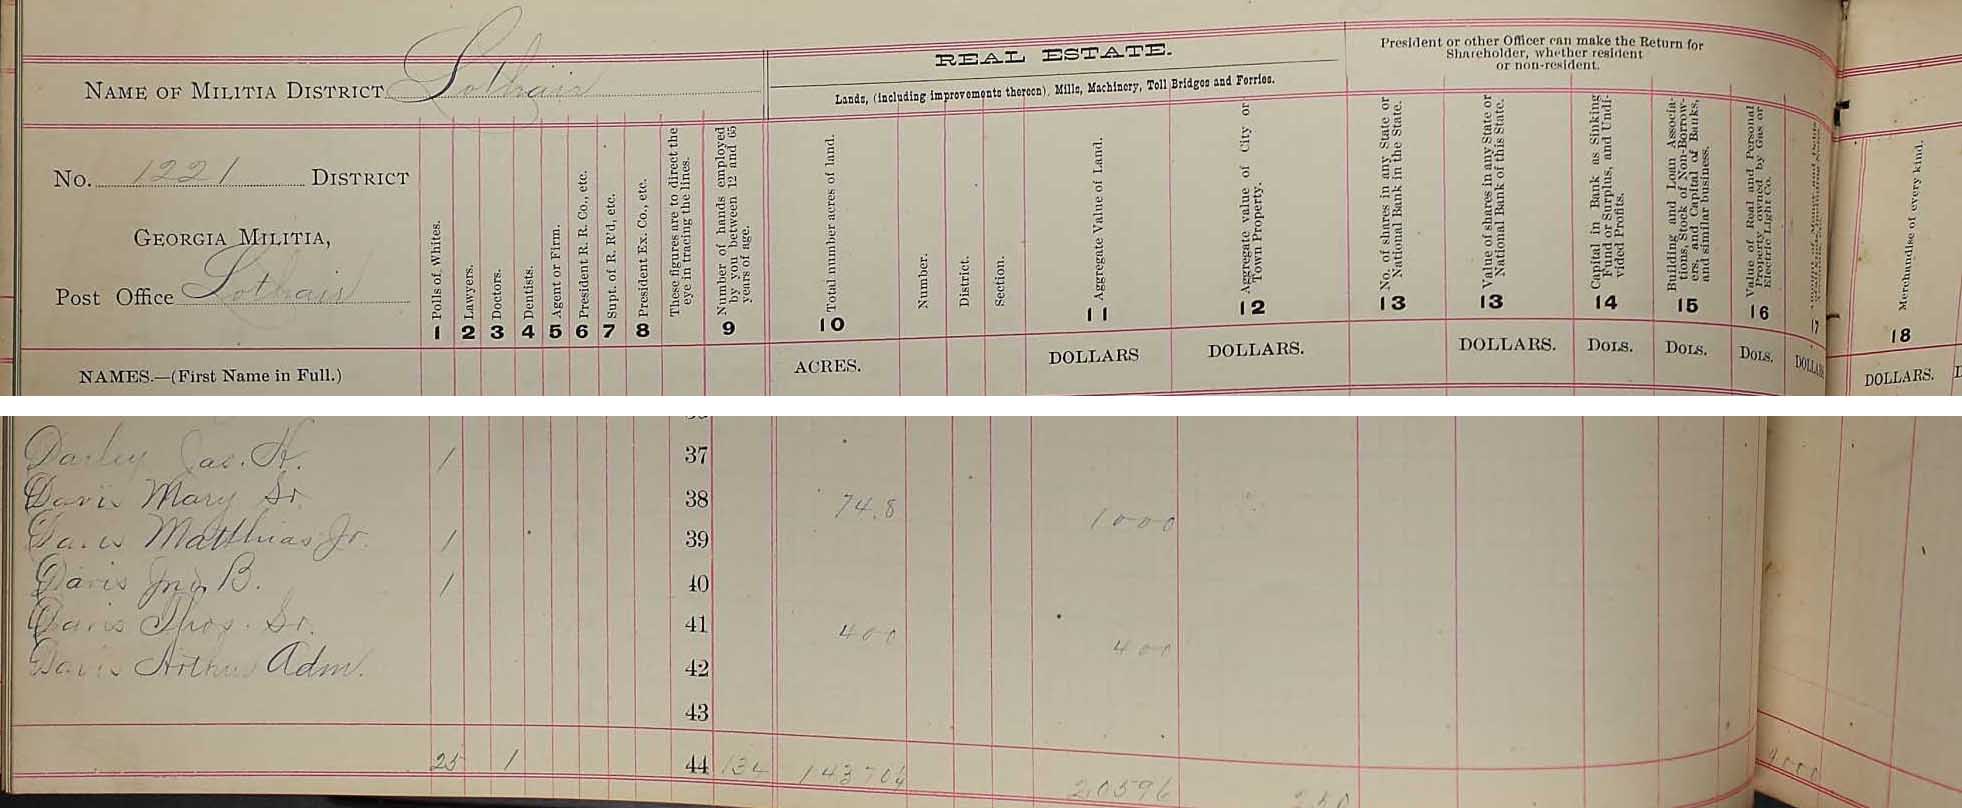 NAME OF MILITIA DISTRICT Lothair
No. 1221 DISTRICT
GEORGIA MILITIA,
Post Office Lothair
NAMES.—(First Name in Full.)
REAL ESTATE.
Lands, (including improvements thereon), Mills, Machinery, Toll Bridges and Ferries.
President or other Officer can make the Return for
Shareholder, whether resident
or non-resident.
Polls of Whites.
1
Lawyers.
2
Doctors.
3
Dentists.
4
Agent or Firm.
5
President R. R. Co., etc.
6
Supt. of R. R'd, etc.
7
President Ex. Co., etc.
8
These figures are to direct the
eye in tracing the lines.
Number of hands employed
by you between 12 and 65
years of age.
9
Total number acres of land.
10
ACRES.
Number.
District.
Section.
Aggregate Value of Land.
11
DOLLARS
Aggregate value of City or
Town Property.
12
DOLLARS.
No. of shares in any State or
National Bank in the State.
13
Value of shares in any State or
National Bank of this State.
13
DOLLARS.
Capital in Bank as Sinking
Fund or Surplus, and Undi-
vided Profits.
14
DOLS.
Building and Loan Associa-
tions, Stock of Non-Borrow-
ers, and Capital of Banks,
and similar business.
15
DOLS.
Value of Real and Personal
Property owned by Gas or
Electric Light Co.
16
DOLS.
17
DOLLARS
Merchandise of every kind.
18
DOLLARS.
Darley Jas. H. 1 37
Davis Mary Sr. 38 74.8 1000
Davis Matthias Jr. 1 39
Davis Jno B. 1 40
Davis Thos. Sr. 41 400 400
Davis Arthur Adm. 42
43
25 1 44 134 14370¼ 20596 250 4000